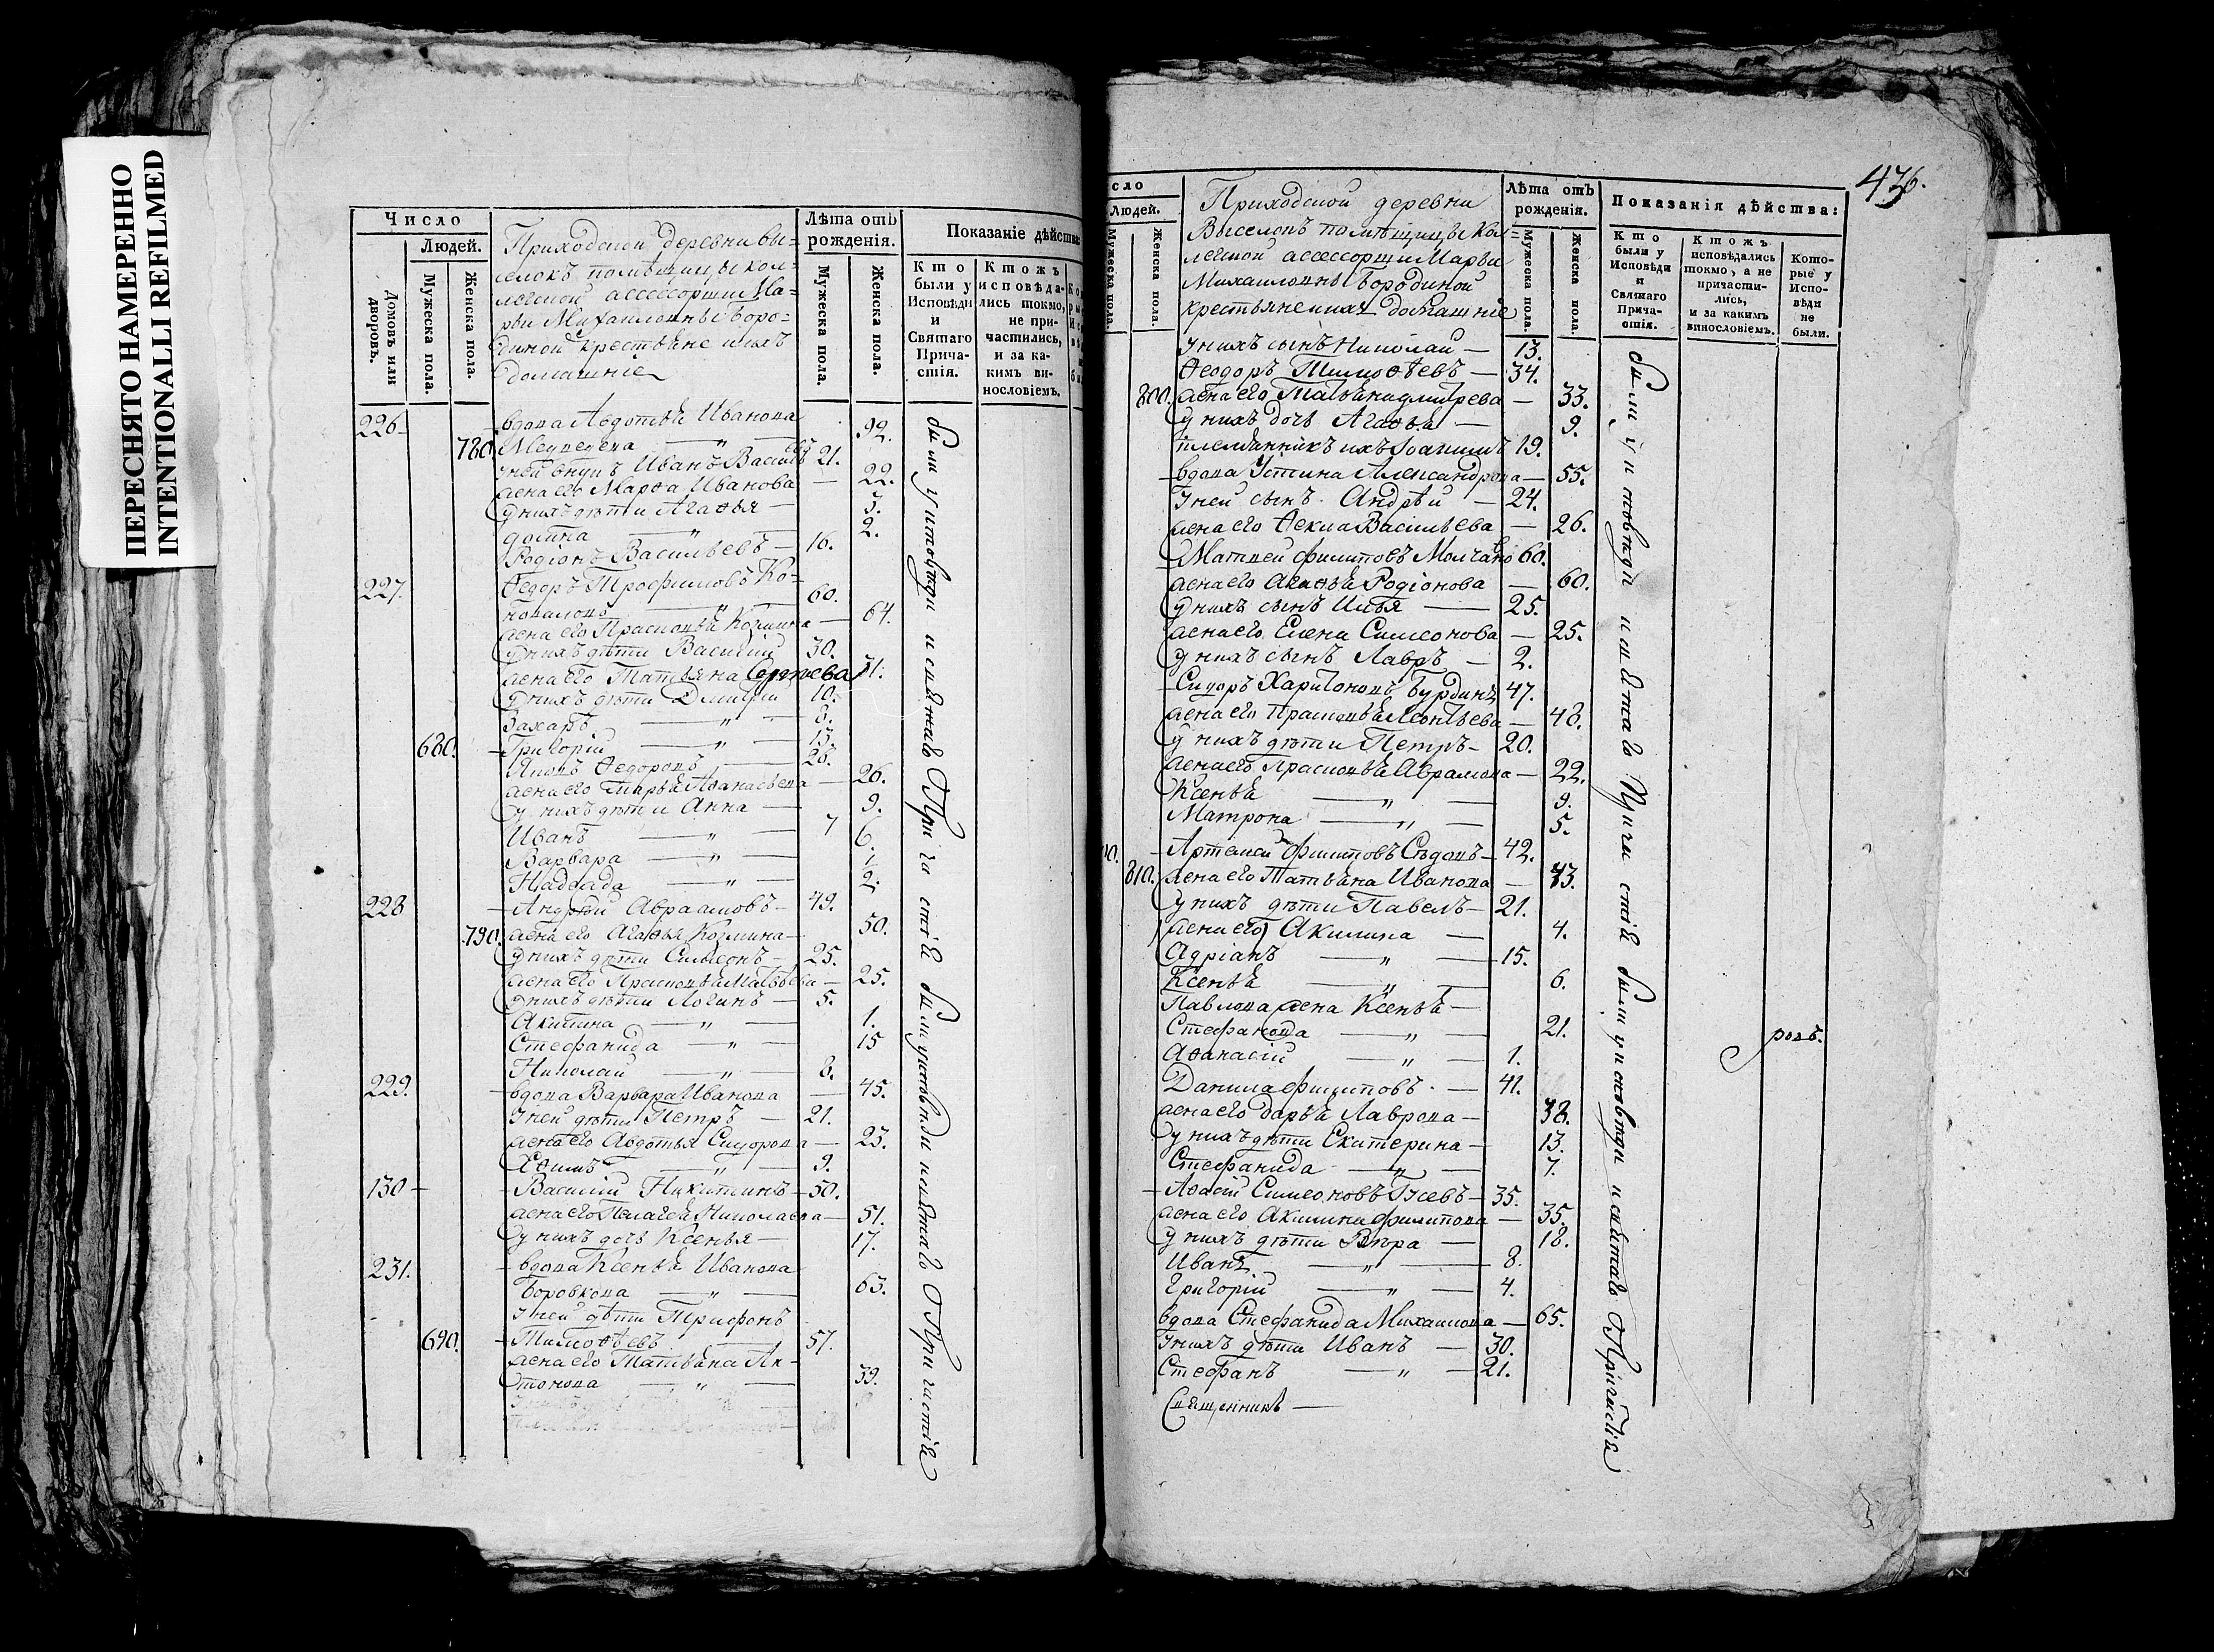 ПЕРЕСНЯТО НАМЕРЕННО
INTENTIONALLI REFILMED
Число
Людей.
Домовъ или дворовъ.
Мужеска пола.
Женска пола.
Приходской деревни вы-
селокъ помѣщицы кол-
лежской ассесорши Ма-
рьи Михаиловны Боро-
диной крестьяне и ихъ
домашніе
Лѣта отъ рожденія.
Мужеска пола.
Женска пола.
Показаніе дѣйства
Кто были у Исповѣди и Святаго Прича-стія.
Ктожъ исповѣда-лись токмо, не при-частились, и за ка-кимъ ви-нословіемъ.
226 вдова Авдотья Иванова 92.
780. Медведева
у ней внукъ Иванъ Васильевъ 21.
жена его Марѳа Иванова 22.
у нихъ дѣти Агаѳья 3.
2.
Родіонъ Васильевъ 16.
227. Ѳедоръ Трофимовъ Ко-
новаловъ 60.
жена его Прасковья Козмина 64.
у нихъ дѣти Василій 30.
жена его Татьяна Сергѣева 31.
у нихъ дѣти Дмитрій 10.
Захаръ 8.
680. Григорій 13.
Яковъ Ѳедоровъ 28.
жена его Марья Аѳанасьева 26.
у нихъ дѣти Анна 9.
Иванъ 7
Варвара 6.
2.
228 Андрей Авраамовъ 49.
790. жена его Агаѳья Козмина 50.
у нихъ дѣти Симеонъ 25.
жена его Прасковья Матвѣева 25.
у нихъ дѣти Логинъ 5.
Акилина 1.
Стефанида 15
Николай 8.
229. вдова Варвара Иванова 45.
у ней дѣти Петръ 21.
жена его Авдотья Сидорова 23.
9.
130 Василій Никитинъ 50.
жена его Пелагея Николаева 51.
у нихъ дочь Ксенья 17.
231. вдова Ксенья Иванова
Боровкова 63.
у ней дѣти Трифонъ
690. Тимоѳеевъ 57.
жена его Татьяна Ан-
тонова 39.
были у исповѣди и святаго Причастія были у исповѣди и святаго Причастія
436.
сло
Людей.
Мужеска пола.
Женска пола.
Приходской деревни
Выселокъ помѣщицы Кол-
лежской ассессорши Марьи
Михаиловны Бородиной
крестьяне и ихъ домашніе
Лѣта отъ рожденія.
Мужеска пола.
Женска пола.
Показанія дѣйства:
Кто были у Исповѣди и Святаго Прича-стія.
Ктожъ исповѣдались токмо, а не причасти-лись, и за какимъ винословіемъ.
Кото-рые у Испо-вѣди не были.
у нихъ сынъ Николай 13.
Ѳеодоръ Тимоѳеевъ 34.
800. жена его Татьяна Дмитрева 33.
у нихъ дочь Агаѳья 9.
племянникъ ихъ Іоакимъ 19.
вдова Устина Александрова 55.
у ней сынъ Андрей 24.
жена его Ѳекла Васильева 26.
Матвей Филиповъ Молчановъ 60.
жена его Агаѳья Родіонова 60.
у нихъ сынъ Илья 25.
жена его Елена Симеонова 25.
у нихъ сынъ Лавръ 2.
Сидоръ Харитоновъ Бурдинъ 47.
жена его Прасковья Леонтьева 48.
у нихъ дѣти Петръ 20.
жена его Прасковья Аврамова 22.
Ксенья 9.
Матрона 5.
Артемій Филиповъ Сѣдовъ 42.
810. жена его Татьяна Иванова 43.
у нихъ дѣти Павелъ 21.
(жена его) Акилина 4.
Адріанъ 15.
Ксенья 6.
Павлова жена Ксенья
Стефанова 21.
Аѳанасій 1.
Данила Филиповъ 41.
жена его Дарья Лаврова 38.
у нихъ дѣти Екатерина 13.
Стефанида 7.
Симеоновъ Гусевъ 35.
жена его Акилина Филипова 35.
у нихъ дѣти Вѣра 18.
Иванъ 8.
Григорій 4.
вдова Стефанида Михаилова 65.
у нихъ дѣти Иванъ 30.
Стефанъ 21.
Священникъ
были у исповѣди и святаго Причастія были у исповѣди и святаго Причастія